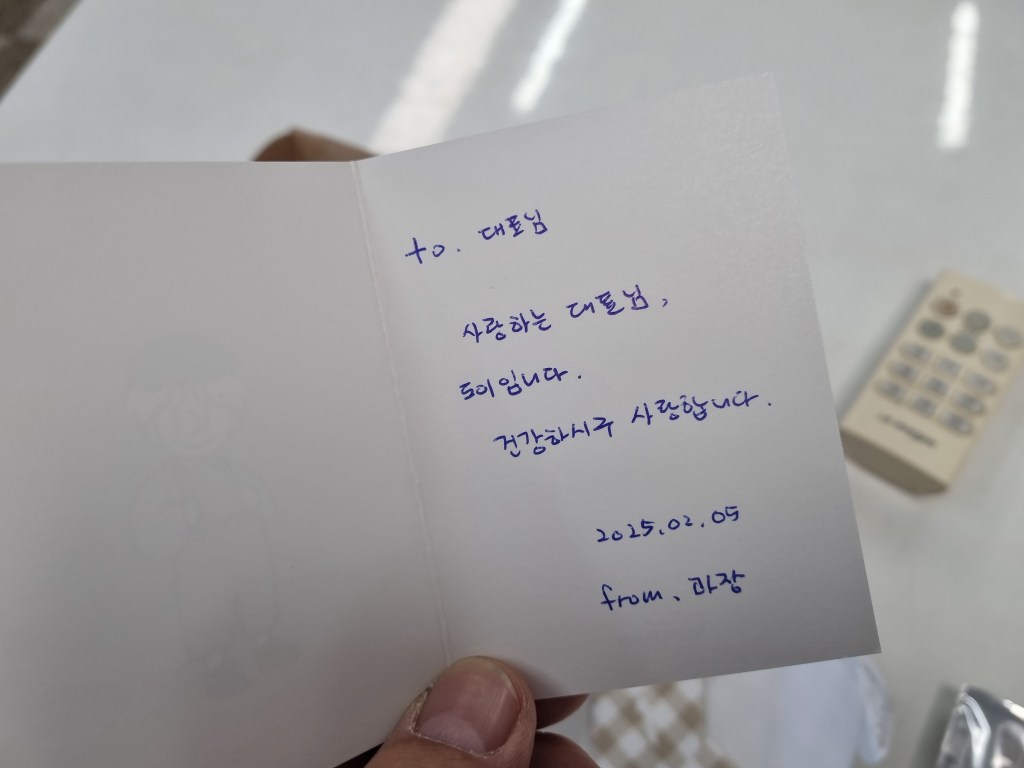 to. 대표님
사랑하는 대표님,
도이입니다.
건강하시구 사랑합니다.
2025.02.05
from. 과장